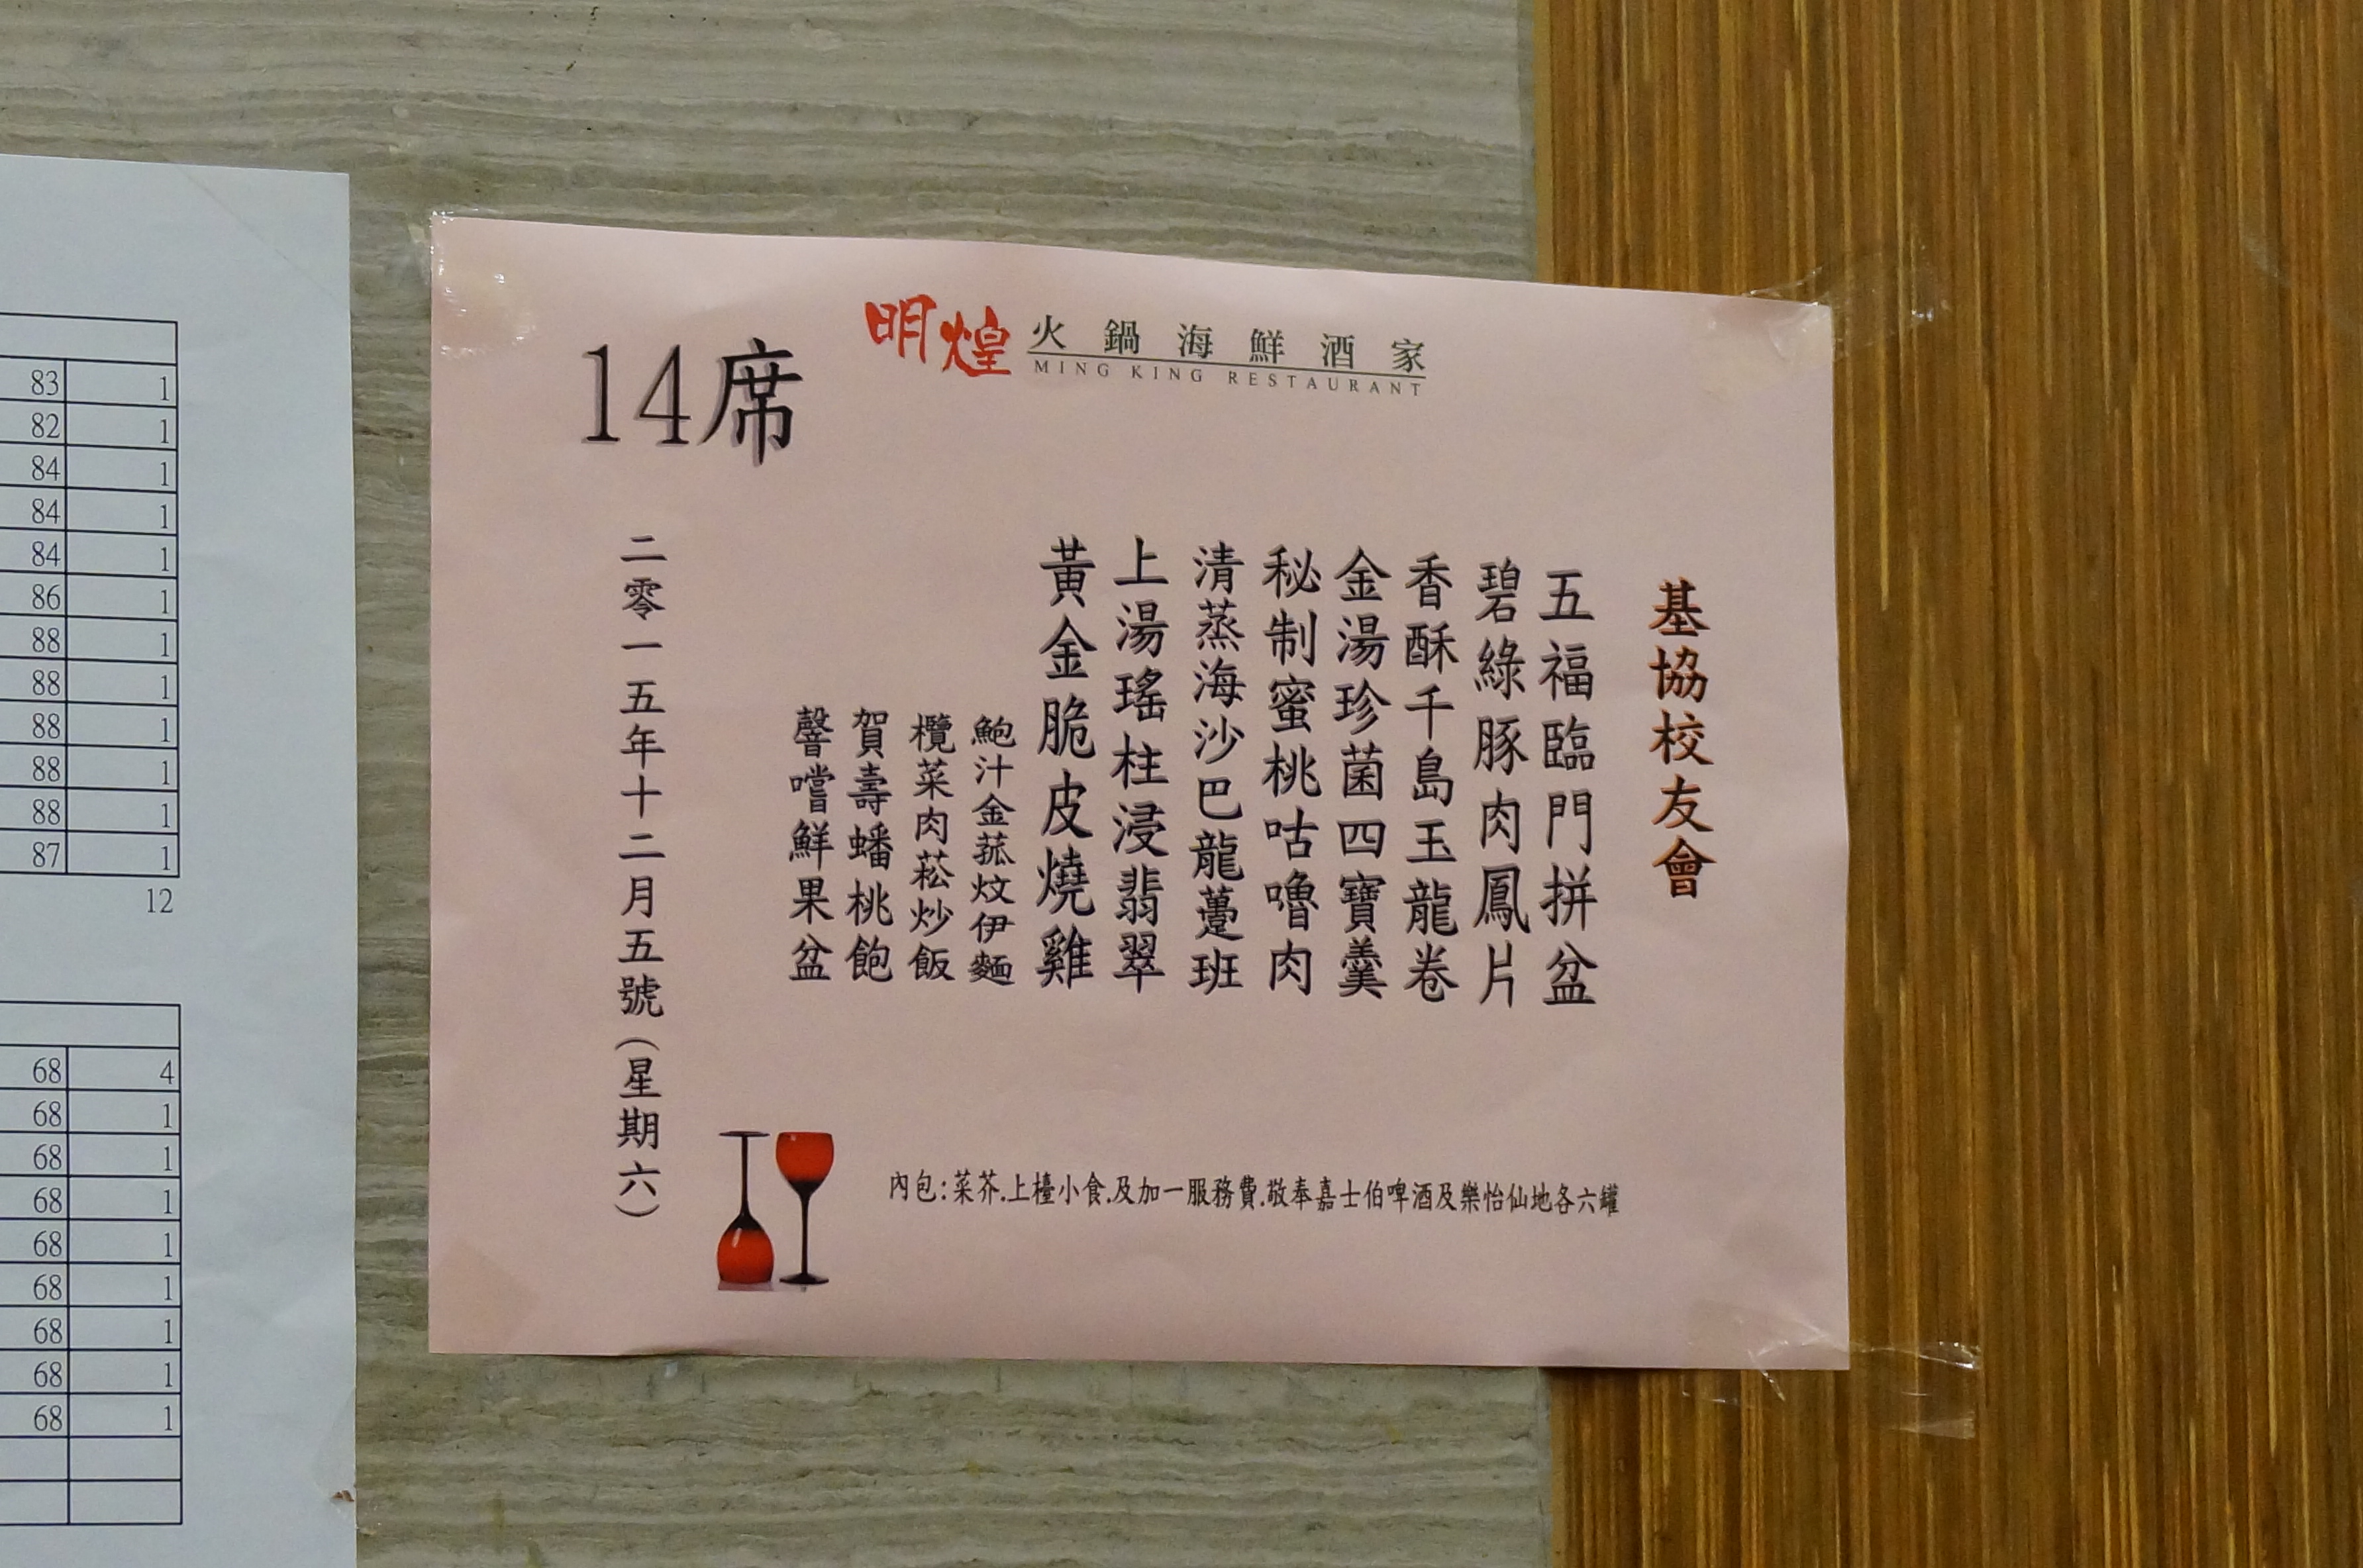 83 1
82 1
84 1
84 1
84 1
86 1
88 1
88 1
88 1
88 1
88 1
87 1
12
68 4
68 1
68 1
68 1
68 1
68 1
68 1
68 1
68 1
明煌 火鍋海鮮酒家
MING KING RESTAURANT
14席
基協校友會
五福臨門拼盆
碧綠豚肉鳳片
香酥千島玉龍卷
金湯珍菌四寶羹
秘制蜜桃咕嚕肉
清蒸海沙巴龍躉班
上湯瑤柱浸翡翠
黃金脆皮燒雞
鮑汁金菰炆伊麵
欖菜肉菘炒飯
賀壽蟠桃飽
馨嚐鮮果盆
二零一五年十二月五號(星期六)
內包:菜芥.上檯小食.及加一服務費.敬奉嘉士伯啤酒及樂怡仙地各六罐